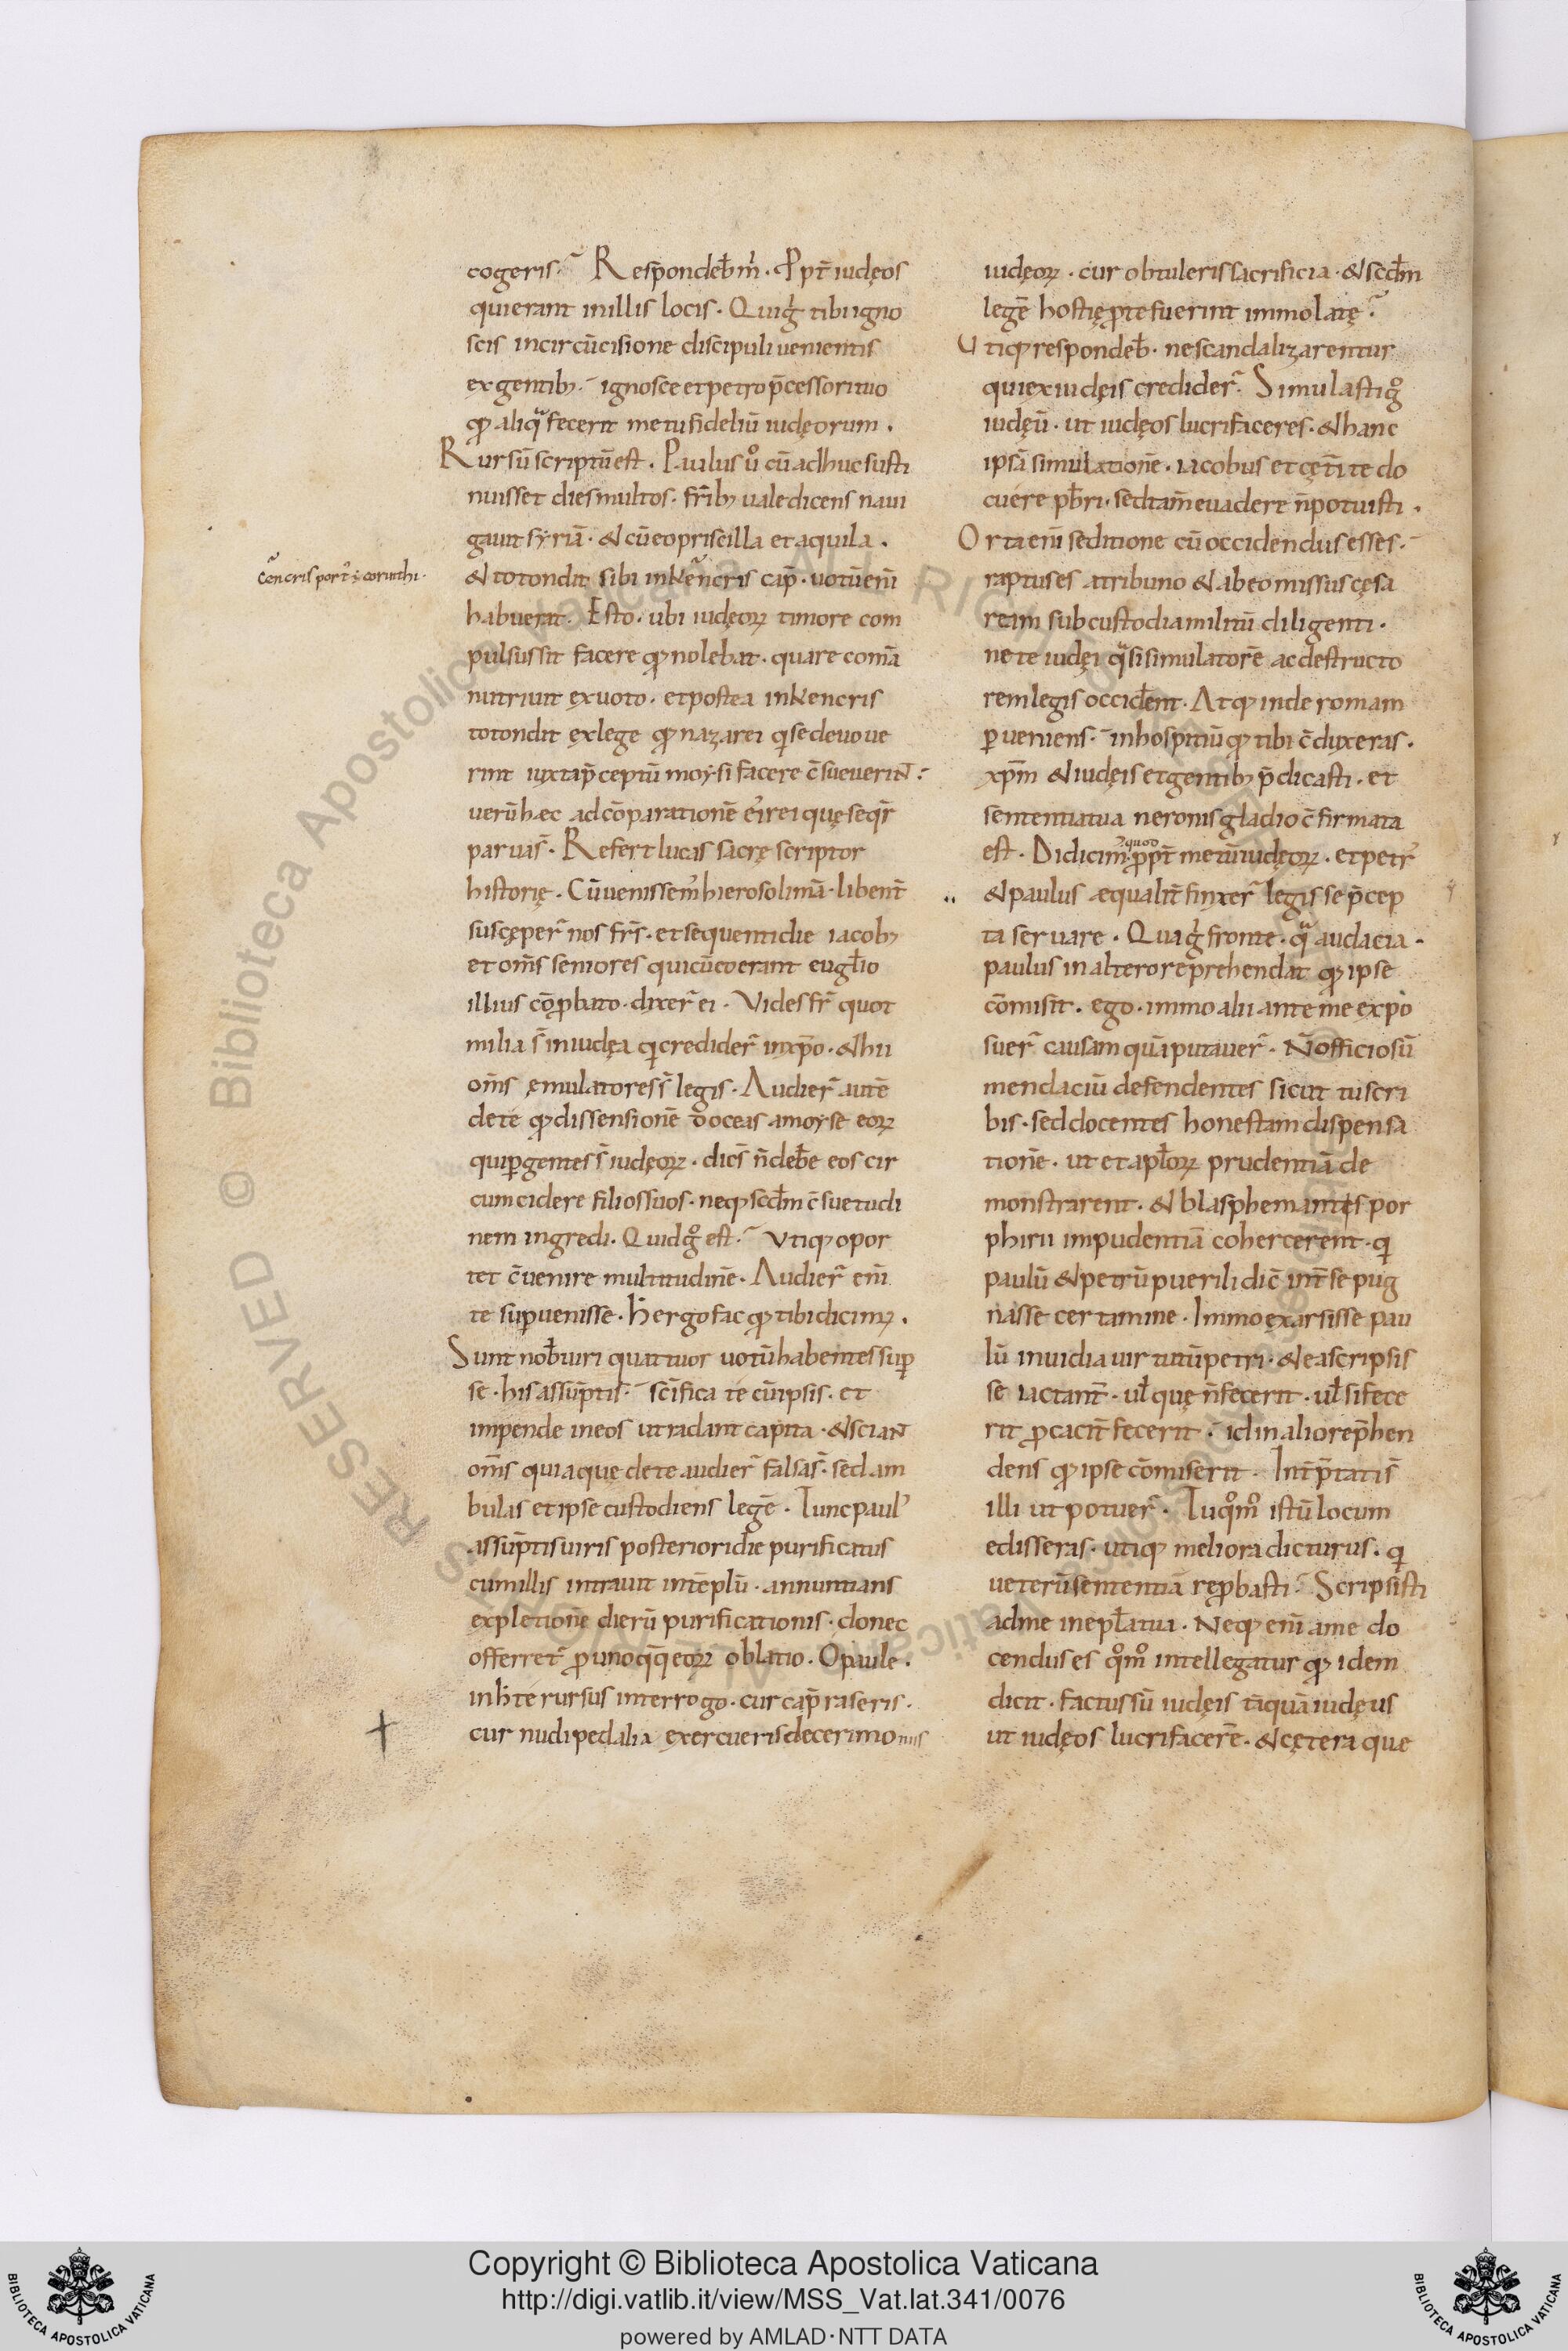 cogeris· Respondeb̄ m̄· Ppt̄ iudęos
qui erant in illis locis· Qui g̊ tibi igno
scis in circūcisione discipuli uenientis
ex gentib;· ignosce et petro p̄cessori tuo
qđ aliq̄ fecerit metu fideliū iudęorum·
Rursū scriptū est· Paulus ů cū adhuc susti
nuisset dies multos· fr̄ib; uale dicens naui
gauit syriā· & cū eo priscilla et aquila·
cencris port' ē corinthi·
& totondit sibi in kencris cap̄· uotū eni̅
habuerat· Esto· ubi iudęoꝝ timore com
pulsus sit facere qđ nolebat· quare comā
nutriuit ex uoto· et postea in kencris
totondit ex lege qđ nazarei qi se deuoue
rint iuxta p̄ceptū moysi facere c̄sueuerint·
uerū hęc ad cōparationē ei' rei quę seqr̄
parua s̄· Refert lucas sacrę scriptor
historię· Cū uenissem' hierosolimā· libent̄
suscęper̄ nos frs̄· et sequenti die iacob;
et om̄s seniores qui cū eo erant eugl̄io
illius cōꝓbato· dixer̄ ei· Vides fr̄ quot
milia s̄ in iudęa qi credider̄ in xp̄o· & hii
om̄s ęmulatores s̄ legis· Audier̄ autē
de te qđ dissensionē doceas a moyse eoꝝ
qui ꝑ gentes s̄ iudęoꝝ· dicēs n̄ debēe eos cir
cumcidere filios suos· neqꝫ scdm̄ c̄suetudi
nem ingredi· Quid g̊ est· Vtiqꝫ opor
tet c̄uenire multitudinē· Audier̄ eni̅
te supuenisse· h̄ ergo fac qđ tibi dicim;·
Sunt nob̄ uiri quattuor uotū habentes sup̄
se· his assūptis· sc̄ifica te cū ipsis· et
impende in eos ut radant capita· & sciant
om̄s quia que de te audier̄ falsa s̄· sed am
bulas et ipse custodiens legē· Tunc paul'
assūptis uiris posteriori die purificatus
cum illis intrauit in tēplū· annuntians
expletionē dierū purificationis· donec
offerret̄ ꝓ uno qq̄ eoꝝ oblatio· O paule·
in h̄ te rursus interrogo· cur cap̄ raseris·
cur nudipedalia exercueris de cerimoniis
iudęoꝝ· cur obtuleris sacrificia· & scdm̄
legē hostię ꝓ te fuerint immolatę·
Vtiqꝫ respondeb̄· ne scandalizarentur
qui ex iudęis credider̄· Simulasti g̊
iudęū· ut iudęos lucrifaceres· & hanc
ipsā simulationē· iacobus et cęt̄i te do
cuere pb̄ri· sed tam̄ euadere n̄ potuisti·
Orta eni̅ seditione cū occidendus esses·
raptus es a tribuno & ab eo missus cęsa
ream sub custodia militū diligenti·
ne te iudęi q̄si simulatorē ac destructo
rem legis occider̄ent· Atqꝫ inde romam
ꝑueniens· in hospitiū qđ tibi c̄duxeras·
xp̄m & iudęis et gentib; p̄dicasti· et
sententia tua neronis gladio c̄firmata
est· Didicim' quod ꝓpt̄ metū iudęoꝝ· et petr'
& paulus æqualit̄ finxer̄ legis se p̄cep
ta seruare· Qua g̊ fronte· q̄ audacia·
paulus in altero reprehendat qđ ipse
cōmisit· ego· immo alii ante me expo
suer̄ causam quā putauer̄· N̄ officiosū
mendaciū defendentes sicut tu scri
bis· sed docentes honestam dispensa
tionē· ut et apl̄oꝝ prudentiā de
monstrarent· & blasphemantes por
phirii impudentiā cohercerent· qi
paulū & petrū puerili dic̄ int̄ se pug
nasse certamine· Immo exarsisse pau
lū inuidia uirtutū petri· & ea scripsis
se iactant̄· ul̄ quę n̄ fecerit· ul̄ si fece
rit ꝓcacit̄ fecerit· id in alio rep̄hen
dens qđ ipse cōmiserit· Int̄p̄tati s̄
illi ut potuer̄· Tu qm̊o istū locum
edisseras· utiqꝫ meliora dicturus· qi
ueterū sententiā reꝓbasti· Scripsisti
ad me in epl̄a tua· Neqꝫ eni̅ a me do
cendus es qm̊o intellegatur qđ idem
dicit· factus sū iudęis tāquā iudęus
ut iudęos lucrifacerē· & cętera que
Copyright © Biblioteca Apostolica Vaticana
http://digi.vatlib.it/view/MSS_Vat.lat.341/0076
powered by AMLAD·NTT DATA